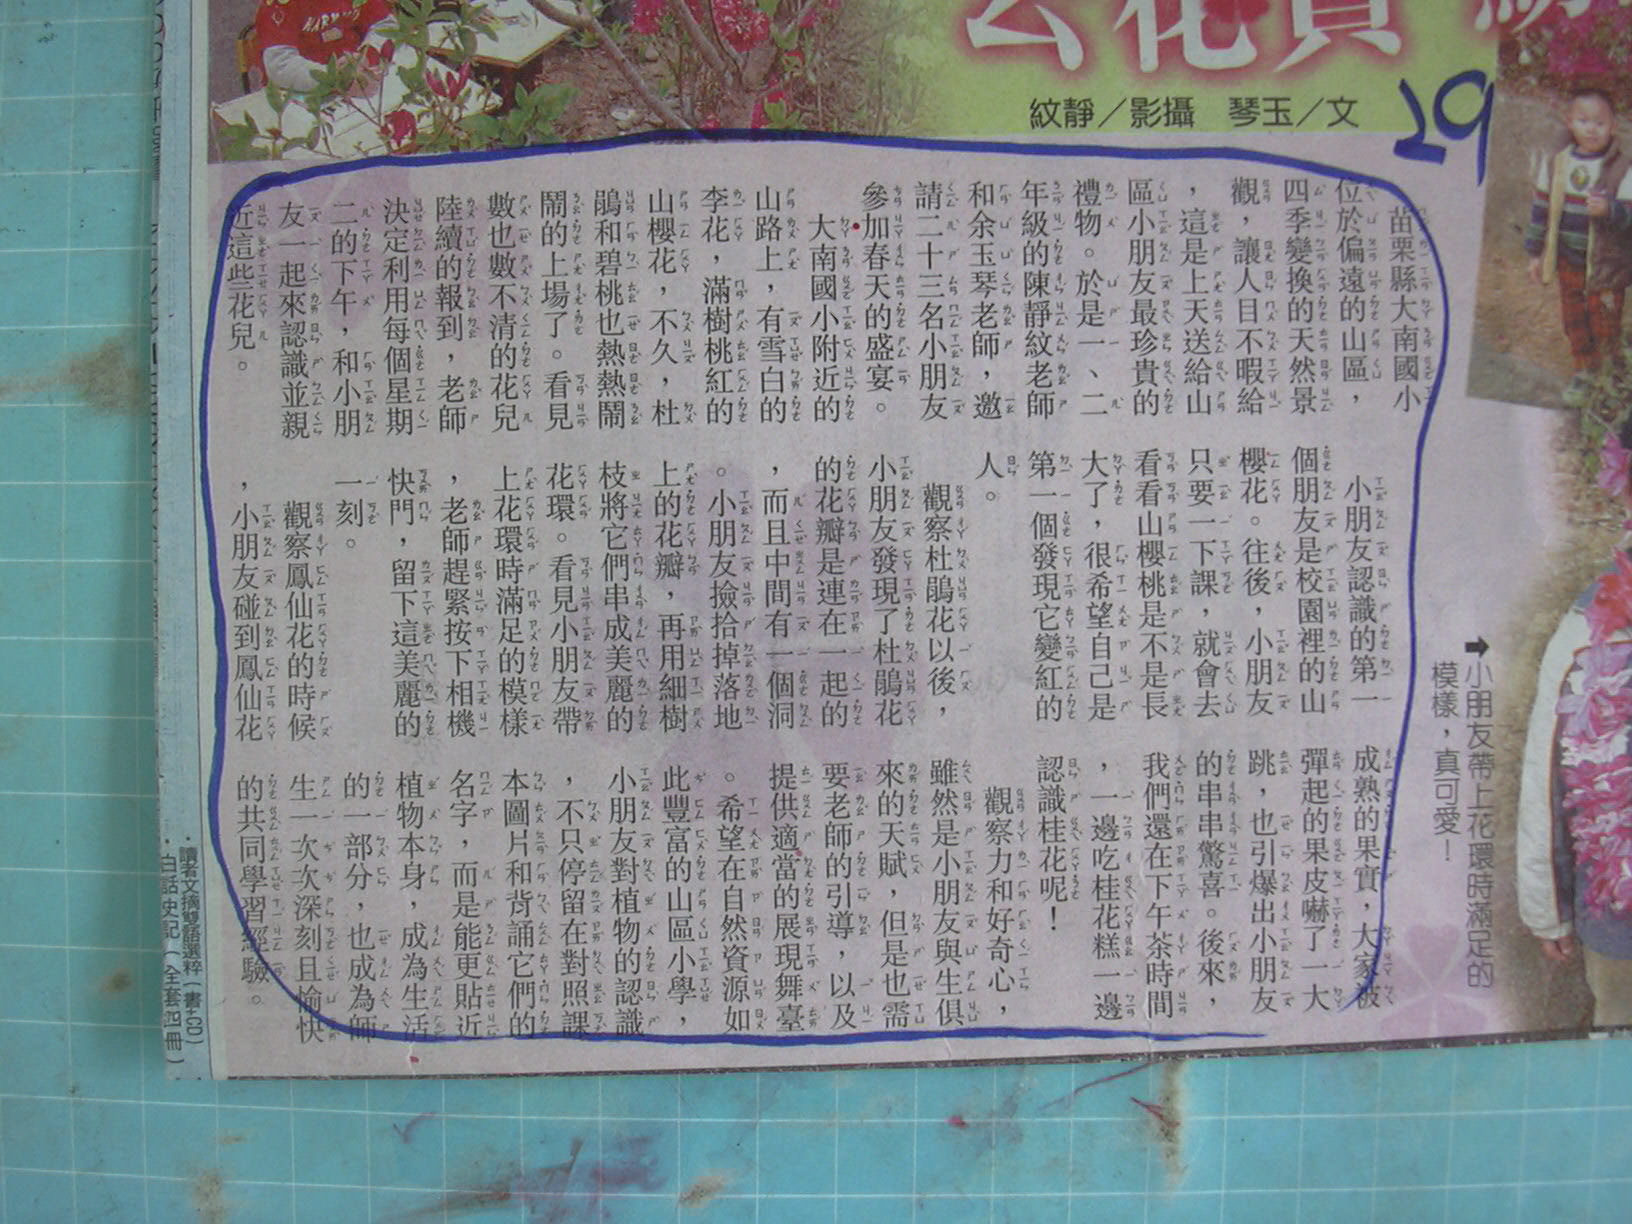 文／玉琴　攝影／靜紋
29
苗栗縣大南國小
位於偏遠的山區，
四季變換的天然景
觀，讓人目不暇給
，這是上天送給山
區小朋友最珍貴的
禮物。於是一、二
年級的陳靜紋老師
和余玉琴老師，邀
請二十三名小朋友
參加春天的盛宴。
大南國小附近的
山路上，有雪白的
李花，滿樹桃紅的
山櫻花，不久，杜
鵑和碧桃也熱熱鬧
鬧的上場了。看見
數也數不清的花兒
陸續的報到，老師
決定利用每個星期
二的下午，和小朋
友一起來認識並親
近這些花兒。
小朋友認識的第一
個朋友是校園裡的山
櫻花。往後，小朋友
只要一下課，就會去
看看山櫻桃是不是長
大了，很希望自己是
第一個發現它變紅的
人。
觀察杜鵑花以後，
小朋友發現了杜鵑花
的花瓣是連在一起的
，而且中間有一個洞
。小朋友撿拾掉落地
上的花瓣，再用細樹
枝將它們串成美麗的
花環。看見小朋友帶
上花環時滿足的模樣
，老師趕緊按下相機
快門，留下這美麗的
一刻。
觀察鳳仙花的時候
，小朋友碰到鳳仙花
成熟的果實，大家被
彈起的果皮嚇了一大
跳，也引爆出小朋友
的串串驚喜。後來，
我們還在下午茶時間
，一邊吃桂花糕一邊
認識桂花呢！
觀察力和好奇心，
雖然是小朋友與生俱
來的天賦，但是也需
要老師的引導，以及
提供適當的展現舞臺
。希望在自然資源如
此豐富的山區小學，
小朋友對植物的認識
，不只停留在對照課
本圖片和背誦它們的
名字，而是能更貼近
植物本身，成為生活
的一部分，也成為師
生一次次深刻且愉快
的共同學習經驗。
➡小朋友帶上花環時滿足的
模樣，真可愛！
・讀者文摘雙語選粹（書+CD）
・白話史記（全套四冊）